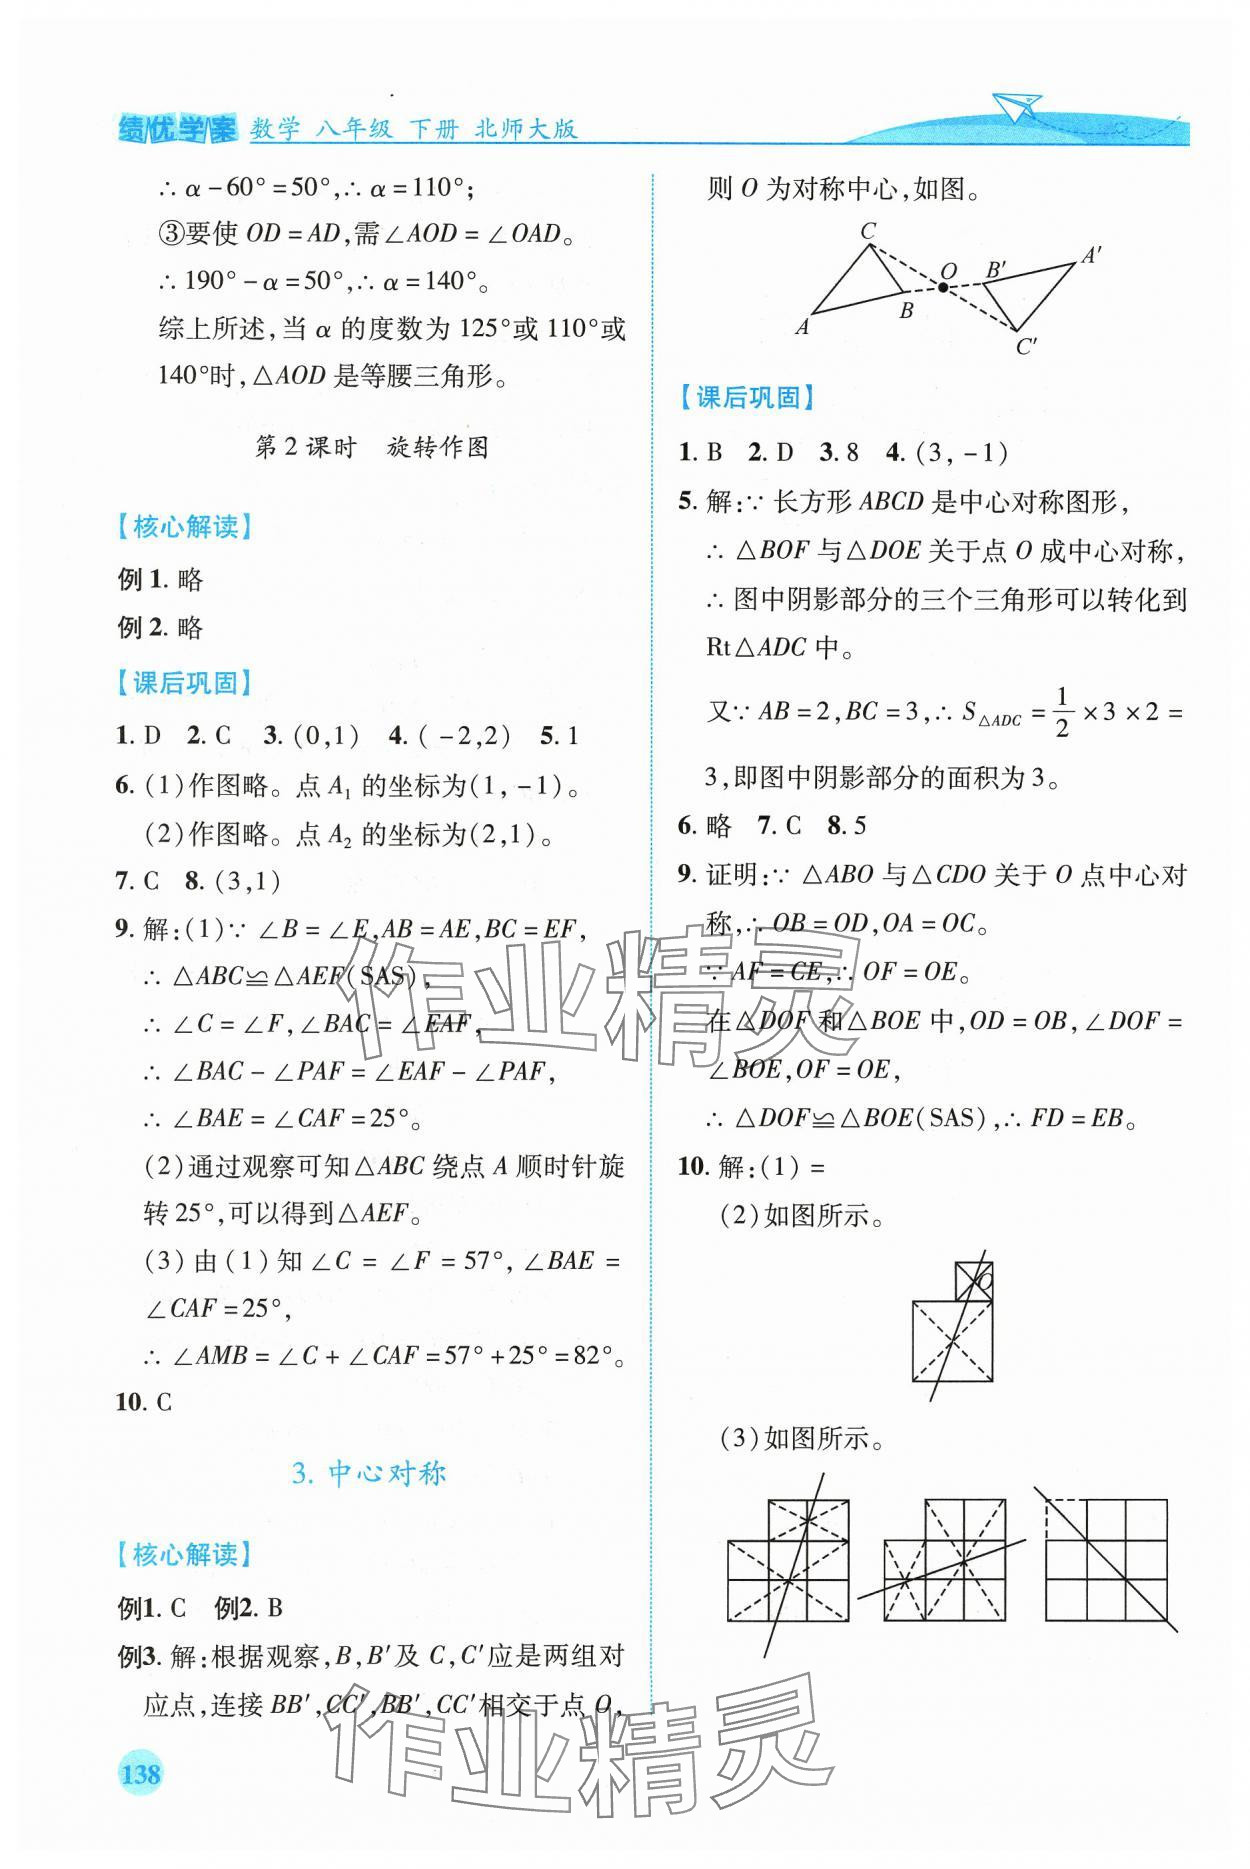 绩优学案 数学 八年级 下册 北师大版
∴ α-60°=50°,∴ α=110°;
③要使 OD=AD,需∠AOD=∠OAD。
∴ 190°-α=50°,∴ α=140°。
综上所述,当 α 的度数为 125°或 110°或
140°时,△AOD 是等腰三角形。
第 2 课时 旋转作图
【核心解读】
例 1. 略
例 2. 略
【课后巩固】
1. D 2. C 3. (0,1) 4. (-2,2) 5. 1
6. (1)作图略。点 A₁ 的坐标为(1,-1)。
(2)作图略。点 A₂ 的坐标为(2,1)。
7. C 8. (3,1)
9. 解:(1)∵ ∠B=∠E,AB=AE,BC=EF,
∴ △ABC≌△AEF(SAS),
∴ ∠C=∠F,∠BAC=∠EAF,
∴ ∠BAC-∠PAF=∠EAF-∠PAF,
∴ ∠BAE=∠CAF=25°。
(2)通过观察可知△ABC 绕点 A 顺时针旋
转 25°,可以得到△AEF。
(3)由(1)知∠C=∠F=57°,∠BAE=
∠CAF=25°,
∴ ∠AMB=∠C+∠CAF=57°+25°=82°。
10. C
3. 中心对称
【核心解读】
例1. C 例2. B
例3. 解:根据观察,B,B′及 C,C′应是两组对
应点,连接 BB′,CC′,BB′,CC′相交于点 O,
138
则 O 为对称中心,如图。
C
O
B′
A′
A
B
C′
【课后巩固】
1. B 2. D 3. 8 4. (3,-1)
5. 解:∵ 长方形 ABCD 是中心对称图形,
∴ △BOF 与△DOE 关于点 O 成中心对称,
∴ 图中阴影部分的三个三角形可以转化到
Rt△ADC 中。
又∵ AB=2,BC=3,∴ S△ADC=1/2×3×2=
3,即图中阴影部分的面积为 3。
6. 略 7. C 8. 5
9. 证明:∵ △ABO 与△CDO 关于 O 点中心对
称,∴ OB=OD,OA=OC。
∵ AF=CE,∴ OF=OE。
在△DOF 和△BOE 中,OD=OB,∠DOF=
∠BOE,OF=OE,
∴ △DOF≌△BOE(SAS),∴ FD=EB。
10. 解:(1)=
(2)如图所示。
O
(3)如图所示。
作业精灵
作业精灵